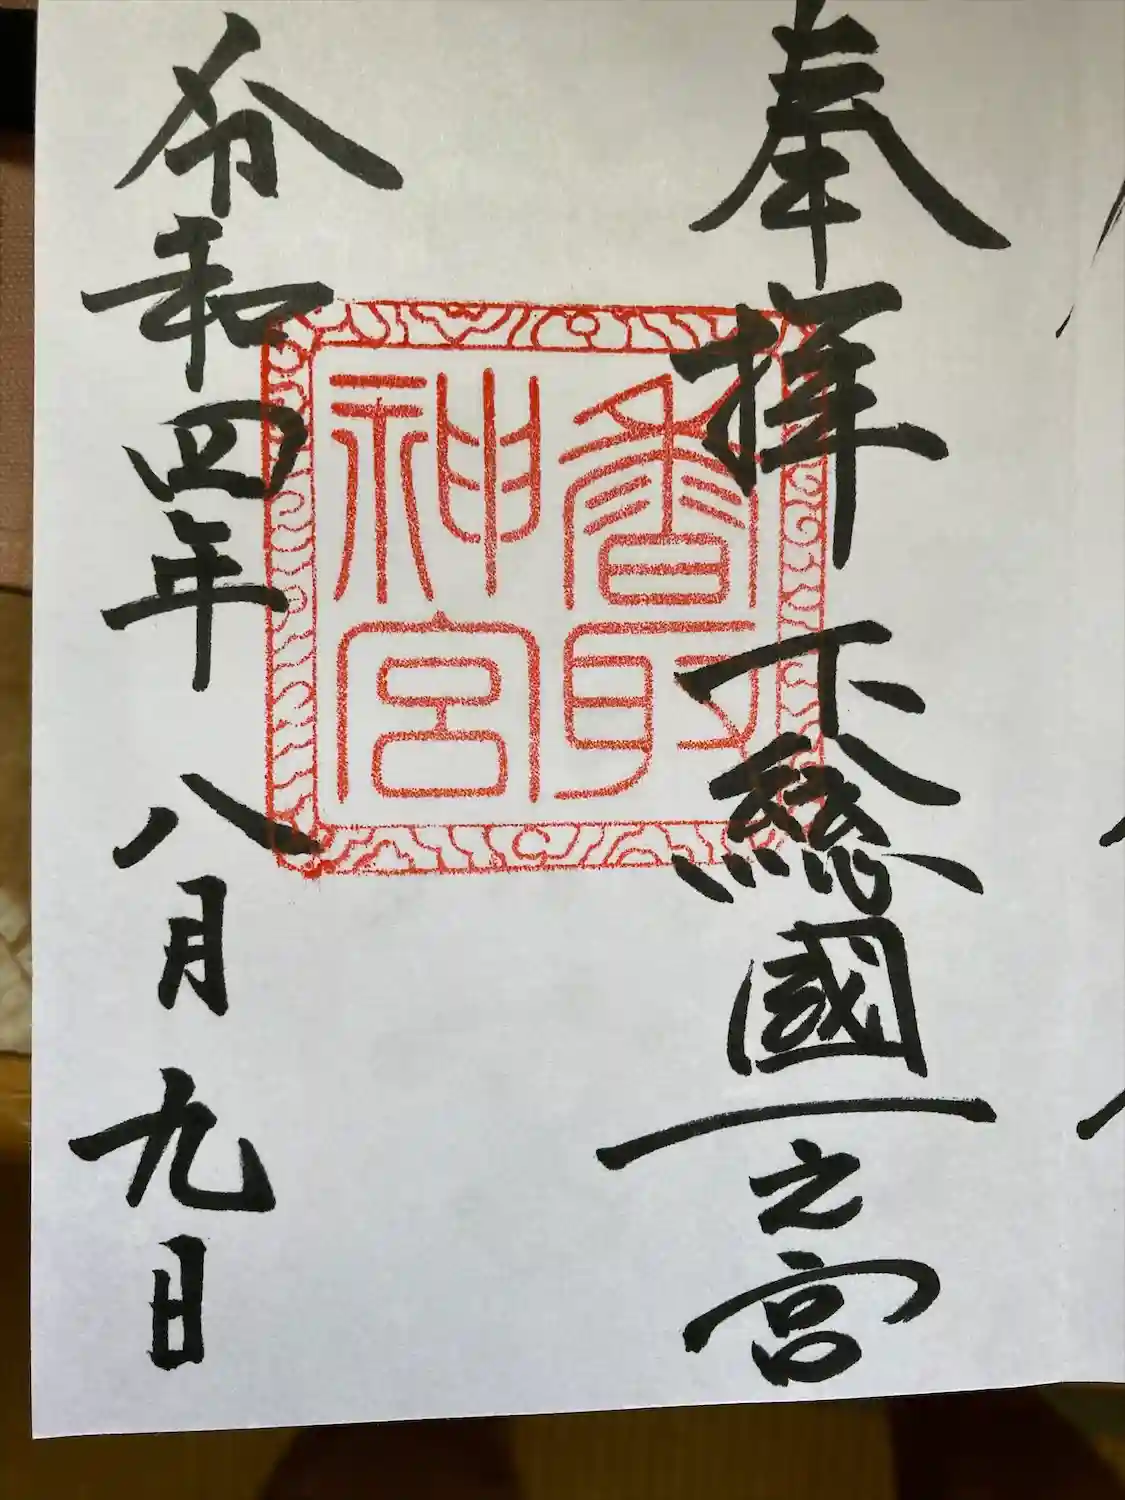 奉拝 下總國一之宮
香取
神宮
令和四年 八月九日